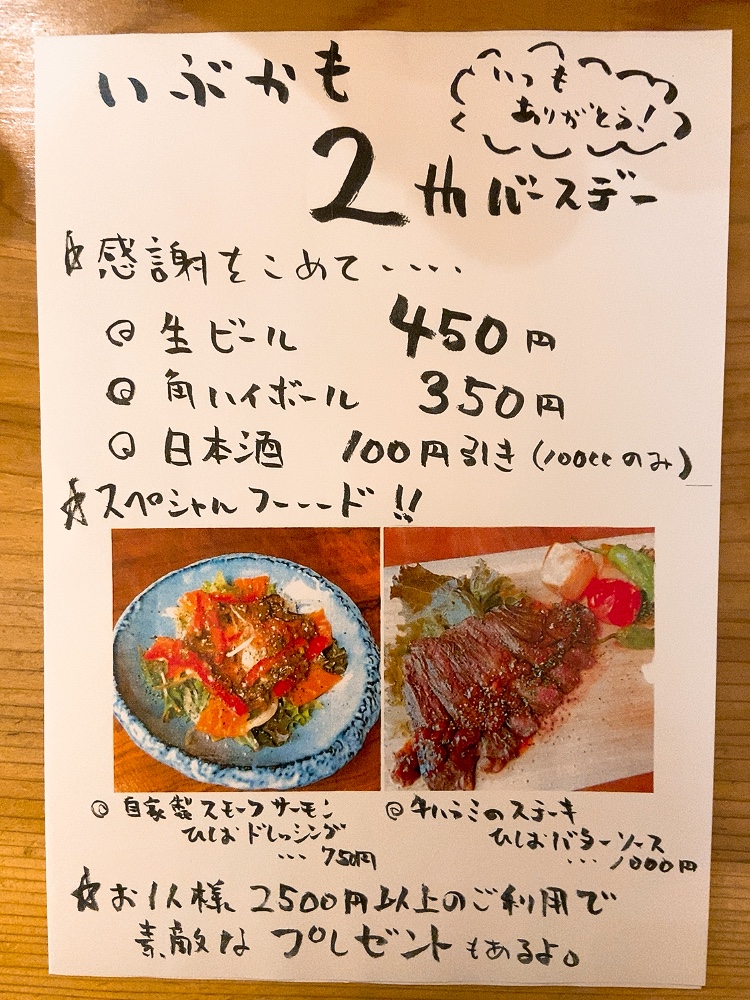 いぶかも
いつも
ありがとう!
2thバースデー
☆感謝をこめて・・・・
◎生ビール 450円
◎角ハイボール 350円
◎日本酒 100円引き(100ccのみ)
☆スペシャルフーード!!
◎自家製スモークサーモン
ひしおドレッシング
・・・750円
◎牛ハラミのステーキ
ひしおバターソース
・・・1000円
☆お1人様、2500円以上のご利用で
素敵なプレゼントもあるよ。